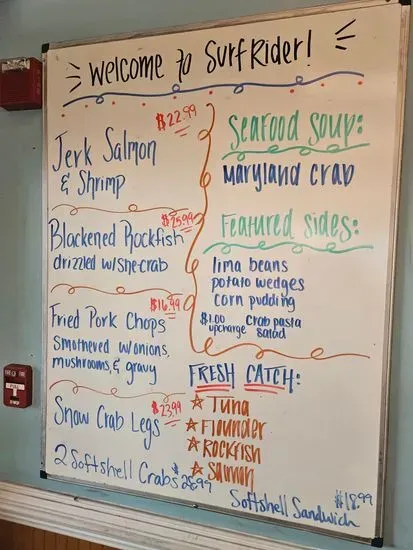 Welcome to SurfRider!
$22.99
Jerk Salmon
& Shrimp
$25.99
Blackened Rockfish
drizzled w/she-crab
$16.99
Fried Pork Chops
Smothered w/onions,
mushrooms, & gravy
$23.99
Snow Crab Legs
2 Softshell Crabs $28.99
Seafood Soup:
Maryland Crab
Featured Sides:
lima beans
potato wedges
corn pudding
$1.00 upcharge Crab pasta
salad
FRESH CATCH:
Tuna
Flounder
Rockfish
Salmon
$18.99
Softshell Sandwich